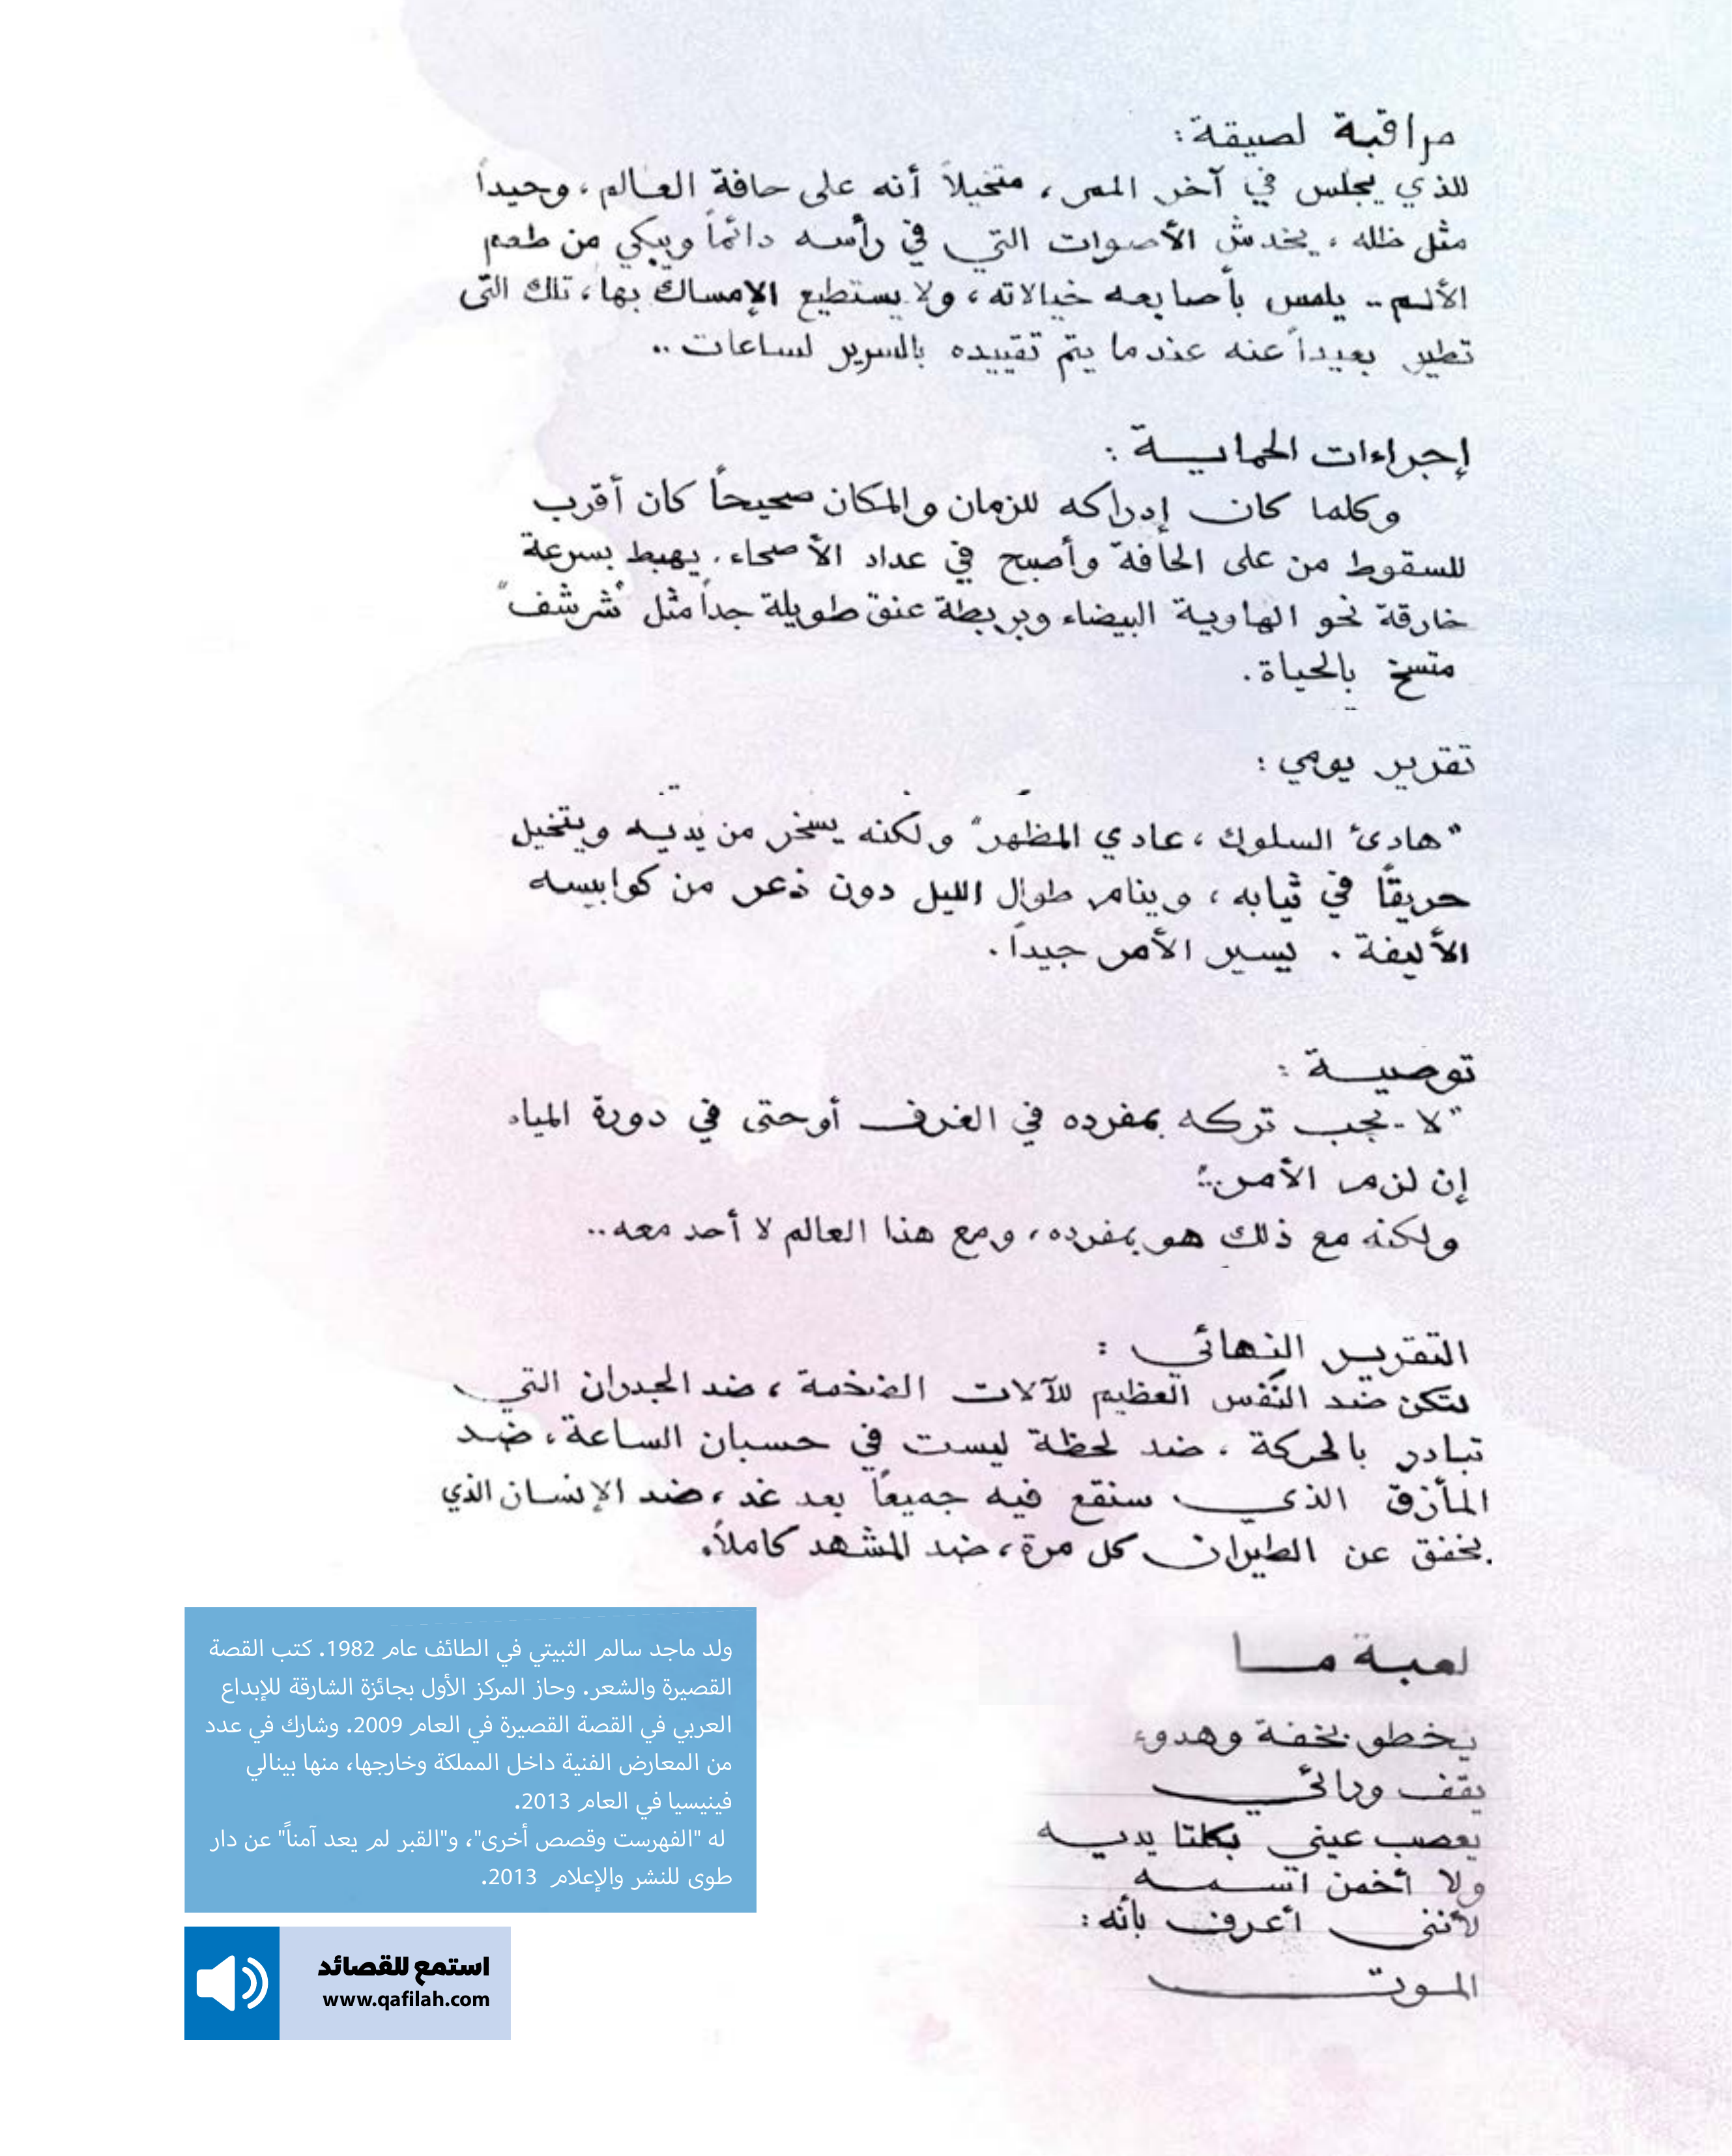 مراقبة لصيقة:
للذي يجلس في آخر الممر، متخيلاً أنه على حافة العالم، وحيداً
مثل ظله، يخدش الأصوات التي في رأسه دائماً ويبكي من طعم
الألم.. يلمس بأصابعه خيالاته، ولا يستطيع الإمساك بها، تلك التي
تطير بعيداً عنه عندما يتم تقييده بالسرير لساعات..
إجراءات الحماية:
وكلما كان إدراكه للزمان والمكان صحيحاً كان أقرب
للسقوط من على الحافة وأصبح في عداد الأصحاء. يهبط بسرعة
خارقة نحو الهاوية البيضاء وبربطة عنق طويلة جداً مثل "شرشف"
متسخ بالحياة.
تقرير يومي:
"هادئ السلوك، عادي المظهر" ولكنه يسخر من يديه ويتخيل
حريقًا في ثيابه، وينام طوال الليل دون ذعر من كوابيسه
الأليفة. يسير الأمر جيداً.
توصية:
"لا يجب تركه بمفرده في الغرف أو حتى في دورة المياه
إن لزم الأمر:"
ولكنه مع ذلك هو بمفرده، ومع هذا العالم لا أحد معه..
التقرير النهائي:
لتكن ضد النَّفس العظيم للآلات الضخمة، ضد الجدران التي
تبادر بالحركة، ضد لحظة ليست في حسبان الساعة، ضد
المأزق الذي سنقع فيه جميعاً بعد غد، ضد الإنسان الذي
يخفق عن الطيران كل مرة، ضد المشهد كاملاً.
لعبة ما
يخطو بخفة وهدوء
يقف ورائي
يعصب عيني بكلتا يديه
ولا أخمن اسمه
لأنني أعرف بأنه:
الموت
ولد ماجد سالم الثبيتي في الطائف عام 1982. كتب القصة
القصيرة والشعر. وحاز المركز الأول بجائزة الشارقة للإبداع
العربي في القصة القصيرة في العام 2009. وشارك في عدد
من المعارض الفنية داخل المملكة وخارجها، منها بينالي
فينيسيا في العام 2013.
له "الفهرست وقصص أخرى"، و"القبر لم يعد آمناً" عن دار
طوى للنشر والإعلام 2013.
استمع للقصائد
www.qafilah.com